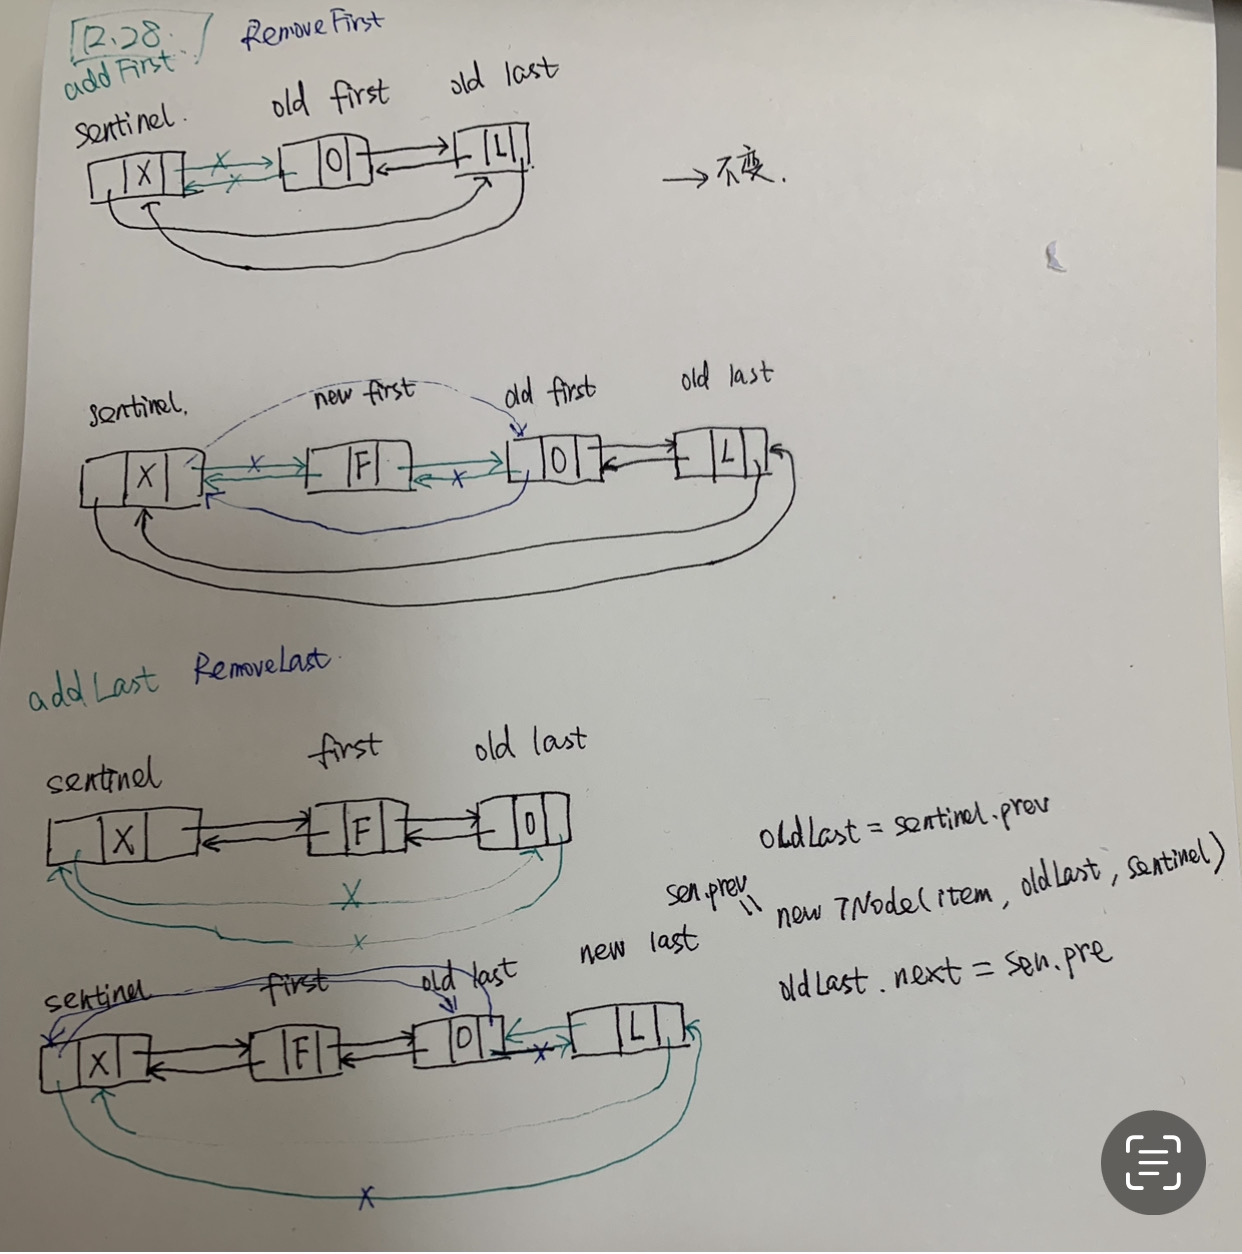 12.28.
addFirst RemoveFirst
sentinel. old first old last
X O L
→不变.
sentinel. new first old first old last
X F O L
addLast RemoveLast.
sentinel first old last
X F O
oldLast = sentinel.prev
sen.prev = new TNode(item, oldLast, sentinel)
oldLast.next = sen.pre
sentinel first old last new last
X F O L